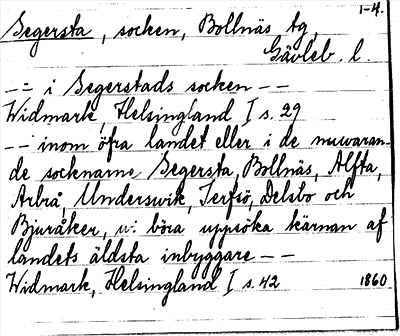 1-4.
Segersta, socken, Bollnäs tg,
Gävleb. l.
-- i Segerstads socken --
Widmark, Helsingland I s. 29
-- inom öfra landet eller i de nuwaran-
de socknarne Segersta, Bollnäs, Alfta,
Arbrå, Underswik, Jerfsö, Delsbo och
Bjuråker, böra uppsöka kärnan af
landets äldsta inbyggare --
Widmark, Helsingland I s. 42 1860